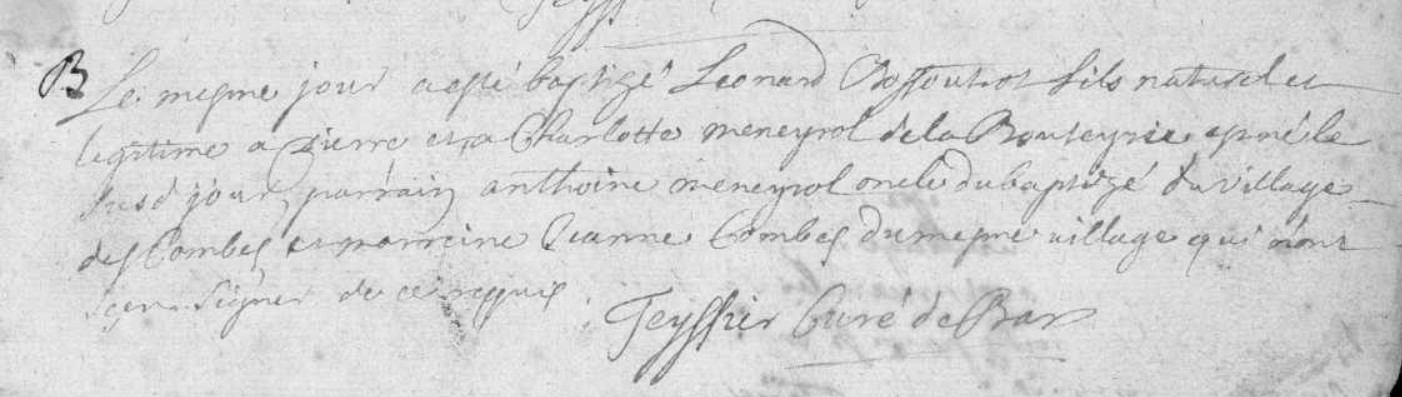 B
Le mesme jour a esté baptizé Leonard Chassoutrot fils naturel et
legitime a Pierre et a Charlotte meneyrol de la Bouteyrie et né le
susd jour, parrain anthoine meneyrol oncle du baptizé du village
des Combes et marreine Jeanne Combes du mesme village qui n'ont
sceu signer de ce requis.
Teyssier Curé de Bar